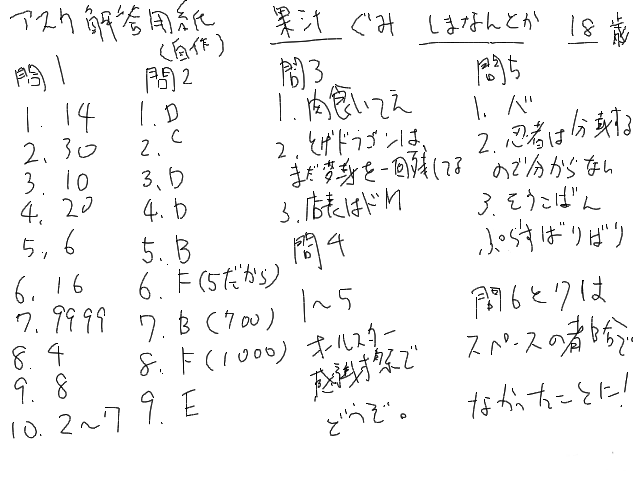 アスク解答用紙
(自作)
果汁 ぐみ しまなんとか 18歳
問1
1. 14
2. 30
3. 10
4. 20
5. 6
6. 16
7. 9999
8. 4
9. 8
10. 2〜7
問2
1. D
2. C
3. D
4. D
5. B
6. F(5だから)
7. B(700)
8. F(1000)
9. E
問3
1. 肉食いてえ
2. とげドラゴンは、
まだ変身を一回残してる
3. 店長はドM
問4
1〜5
オールスター
感謝祭で
どうぞ。
問5
1. べ
2. 忍者は分裂する
ので分からない
3. そうこばん
ぷらすばりばり
問6と7は
スペースの都合で
なかったことに!